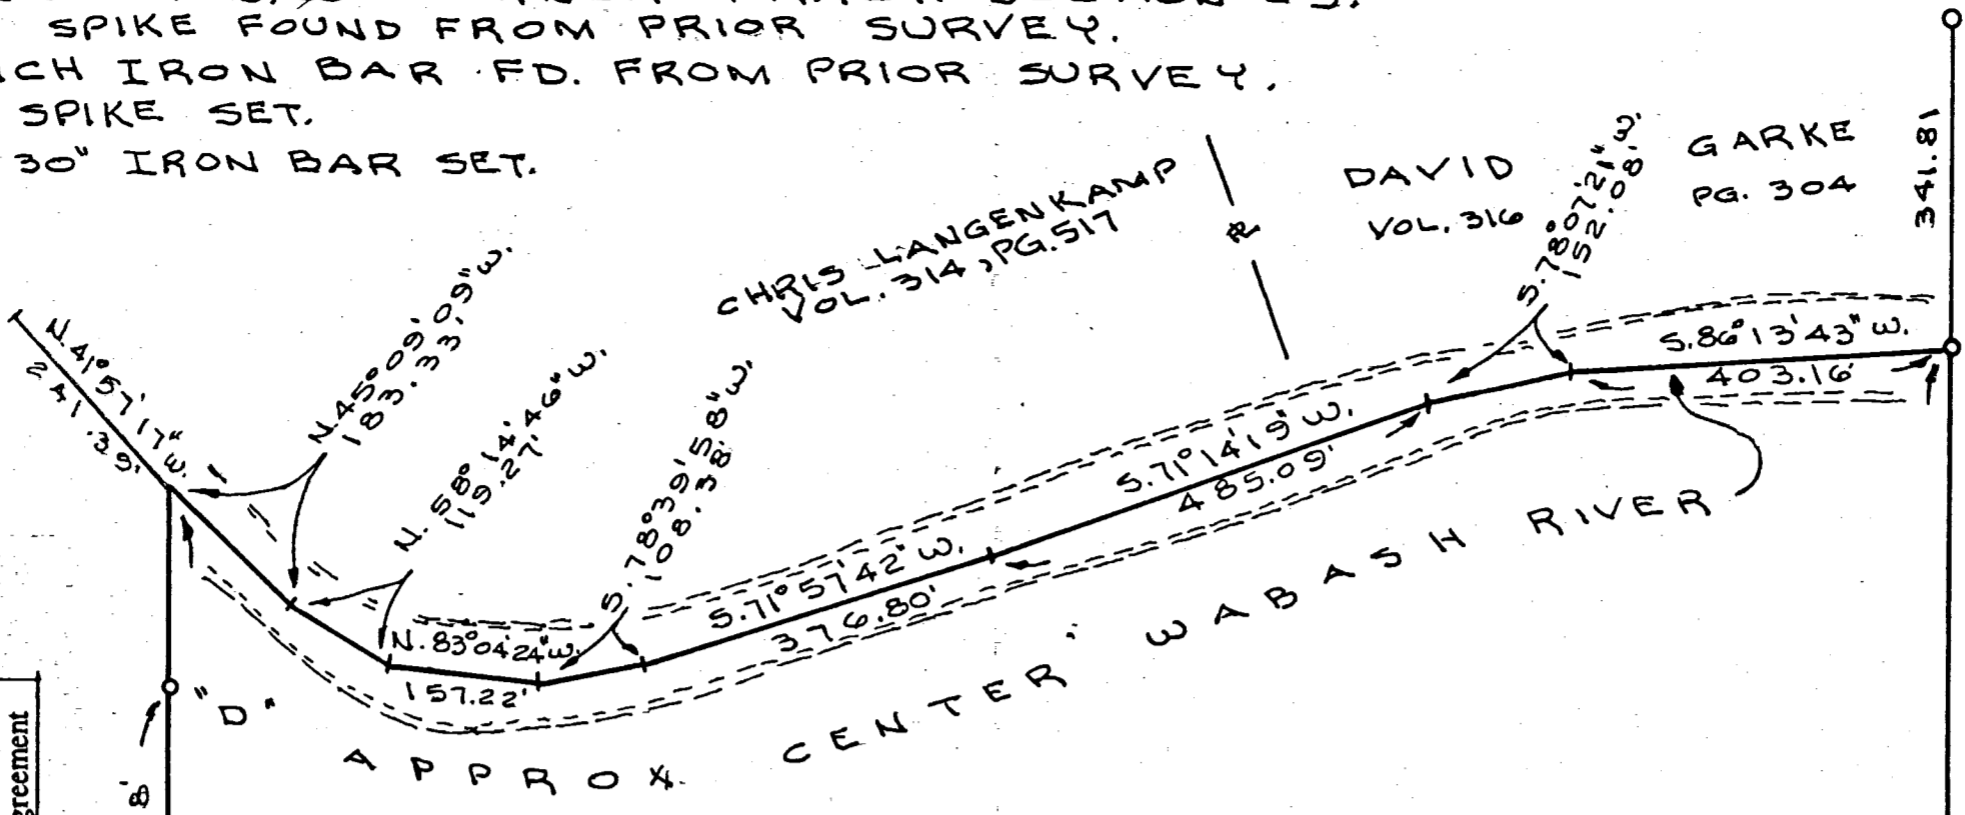 SPIKE FOUND FROM PRIOR SURVEY.
IRON BAR FD. FROM PRIOR SURVEY.
SPIKE SET.
30" IRON BAR SET.
CHRIS LANGENKAMP
VOL. 314, PG. 517
DAVID GARKE
VOL. 316 PG. 304
341.81
N. 41° 57' 17" W.
241.39'
N. 45° 09' 09" W.
183.33'
N. 58° 14' 46" W.
119.27'
N. 83° 04' 24" W.
157.22'
S. 78° 39' 58" W.
108.38'
S. 71° 57' 42" W.
376.80'
S. 71° 14' 19" W.
485.09'
S. 78° 07' 21" W.
152.08'
S. 86° 13' 43" W.
403.16'
"D"
APPROX. CENTER WABASH RIVER